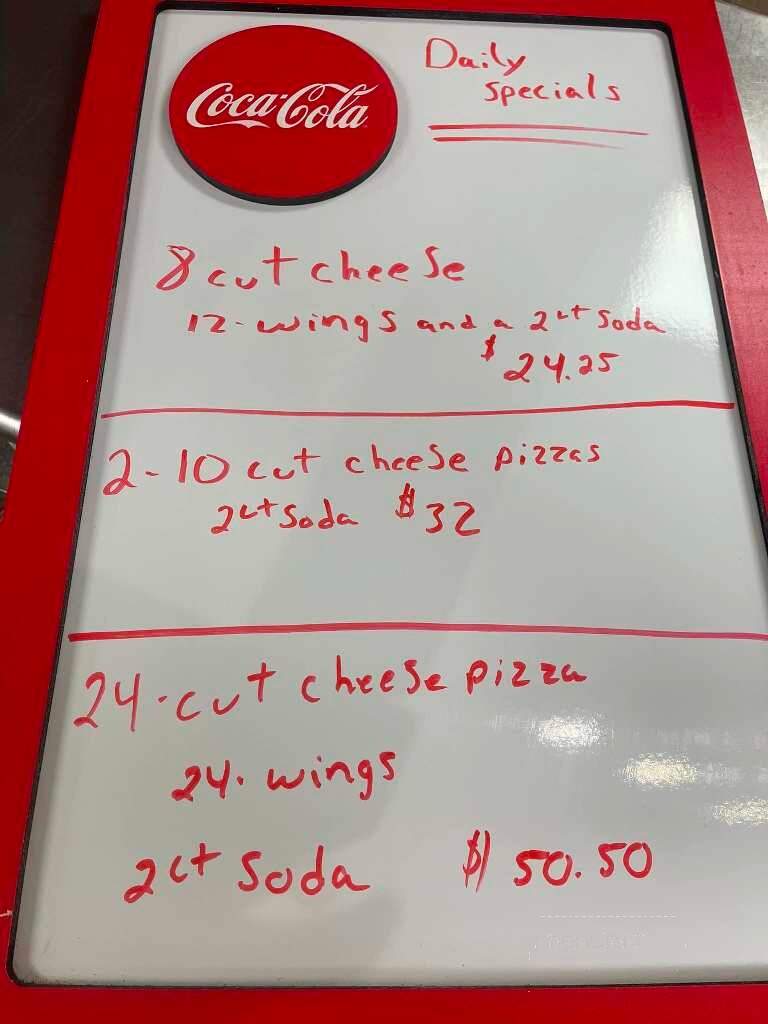 Coca-Cola
Daily
specials
8 cut cheese
12-wings and a 2Lt Soda
$24.25
2-10 cut cheese pizzas
2Lt Soda $32
24-cut cheese pizza
24-wings
2Lt Soda $50.50